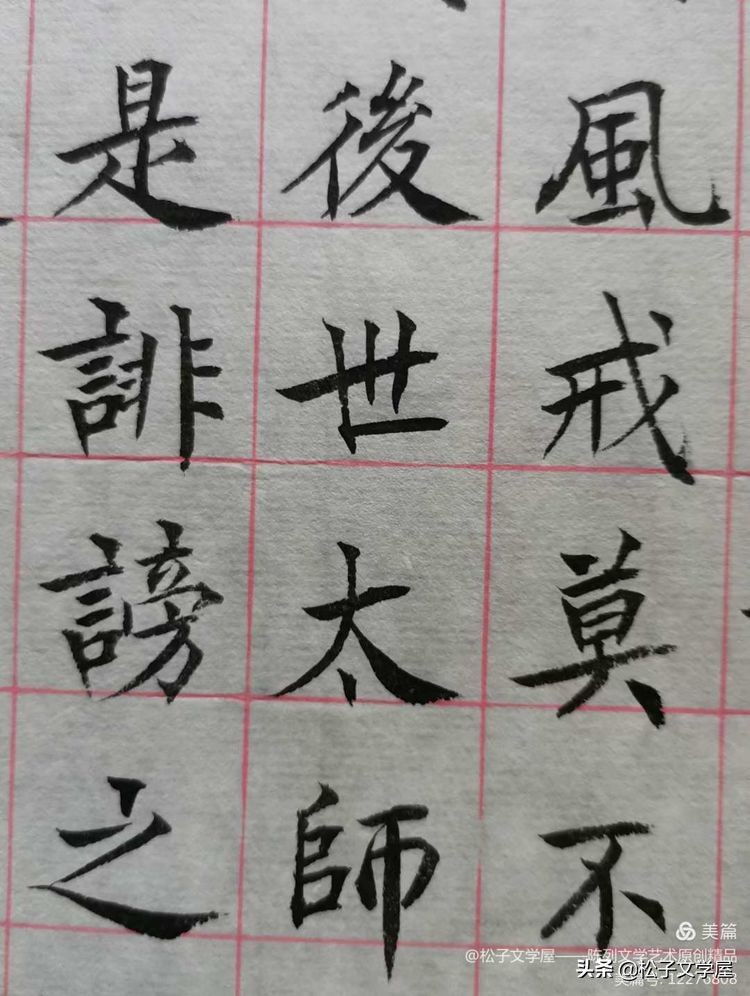 風戒莫不
後世太師
是誹謗之
美篇
@松子文学屋——陈列文学艺术原创精品
头条 @松子文学屋
美篇号: 12276808